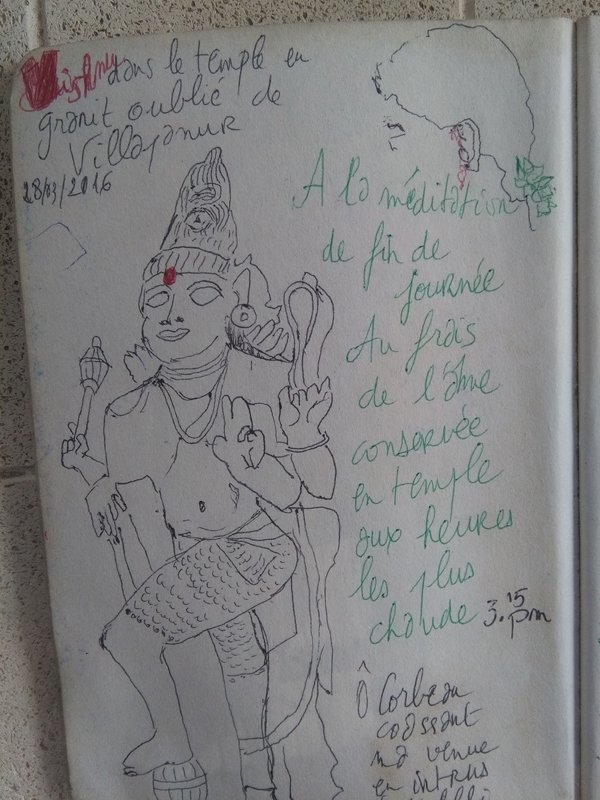 Vishnu dans le temple en
granit oublié de
Villapanur
28/03/2016
A la méditation
de fin de
journée
Au frais
de l'âme
conservée
en temple
aux heures
les plus
chaude 3.15 pm
Ô Corbeau
coassant
ma venue
en intrus